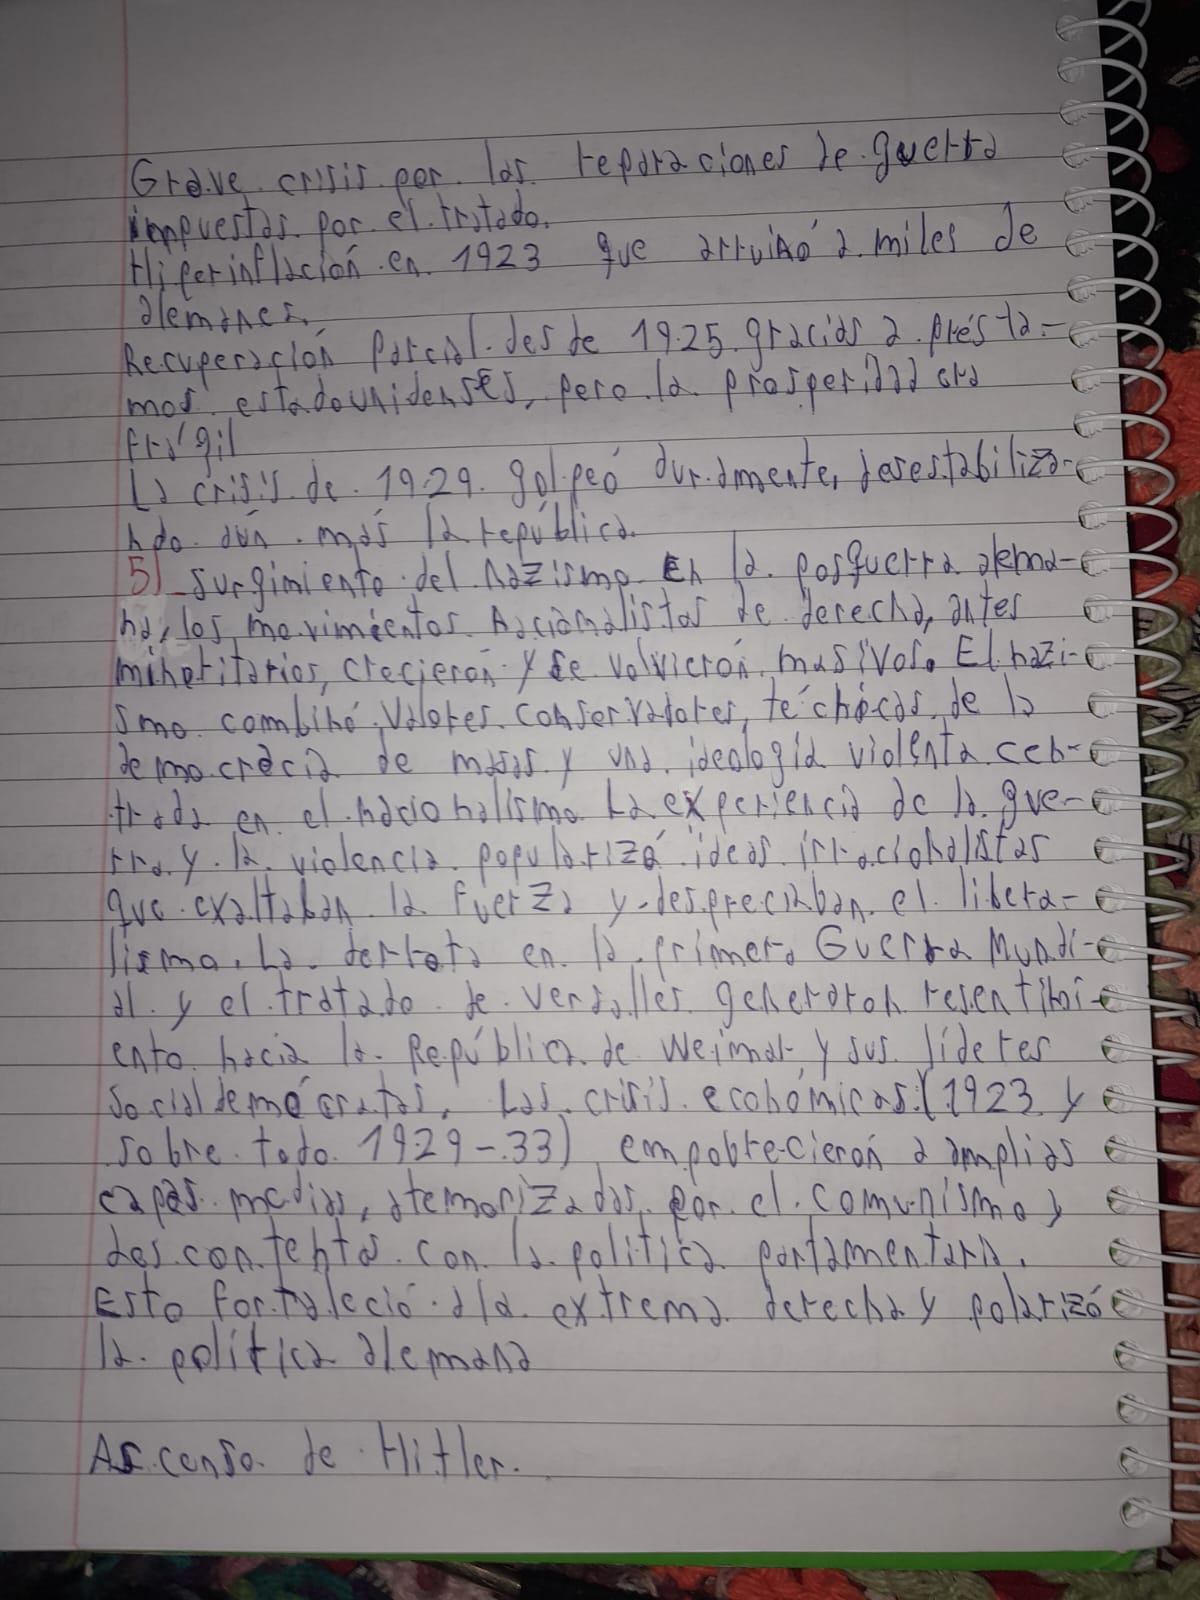 Grave crisis por las reparaciones de guerra
impuestas por el tratado.
Hiperinflación en 1923 que arruinó a miles de
alemanes.
Recuperación parcial desde 1925 gracias a présta-
mos estadounidenses, pero la prosperidad era
frágil
La crisis de 1929 golpeó duramente, desestabiliza-
ndo aún más la república.
5) surgimiento del nazismo En la posguerra alema-
na, los movimientos nacionalistas de derecha, antes
minoritarios, crecieron y se volvieron masivos. El nazi-
smo combinó valores conservadores, técnicas de la
democracia de masas y una ideología violenta cen-
trada en el nacionalismo La experiencia de la gue-
rra y la violencia popularizó ideas irracionalistas
que exaltaban la fuerza y despreciaban el libera-
lismo. La derrota en la primera Guerra Mundi-
al y el tratado de versalles generaron resentimi-
ento hacia la República de Weimar y sus líderes
socialdemócratas. Las crisis económicas (1923 y
sobre todo 1929-33) empobrecieron a amplias
capas medias, atemorizadas por el comunismo y
descontentas con la política parlamentaria.
Esto fortaleció a la extrema derecha y polarizó
la política alemana
Ascenso de Hitler.